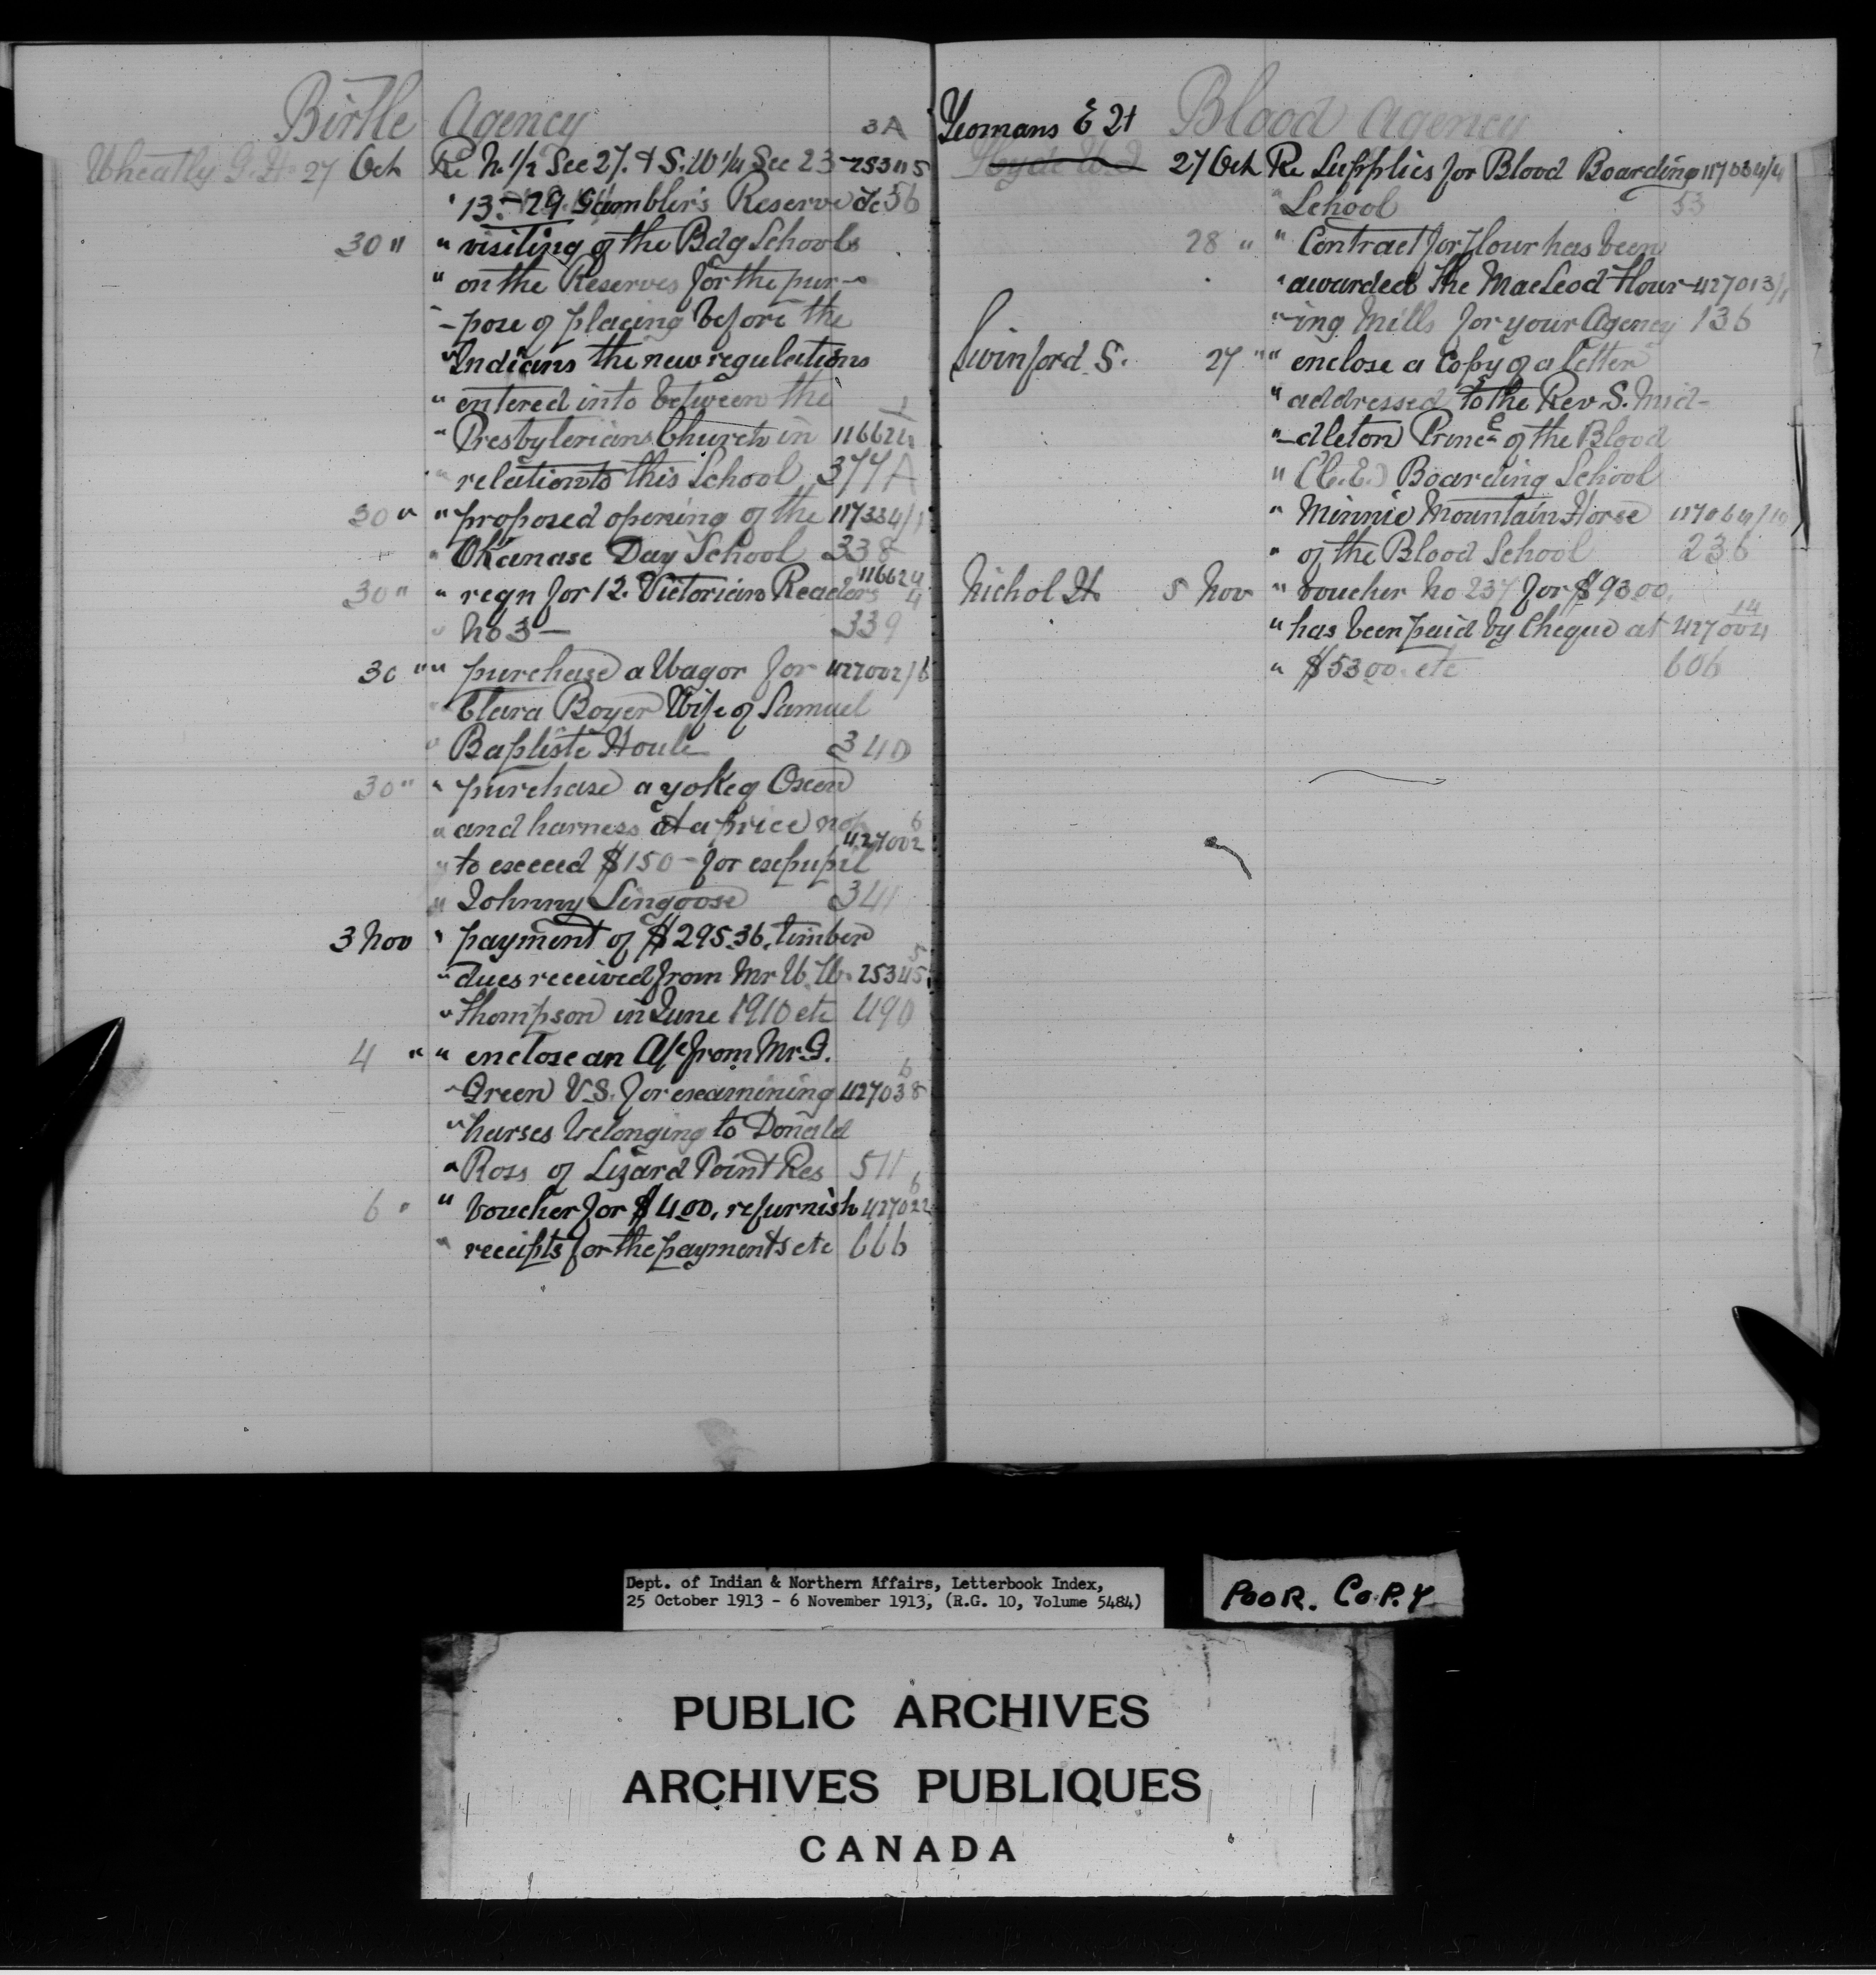 Birtle Agency 3A
Wheatly G. H. 27 Oct Re N. 1/2 Sec 27. & S. W 1/4 Sec 23 - 25345
" 13 - 29 Gambler's Reserve etc 56
30 " " visiting of the Bdg Schools
" on the Reserves for the pur-
" -pose of placing before the
" Indians the new regulations
" entered into between the 1
" Presbyterians Church in 116624
" relation to this School 377A
30 " " proposed opening of the 117334/1
" Okanase Day School 338
30 " " reqn for 12. Victorian Readers 116624/4
" No 3 — 339
30 " " purchase a Wagon for 427002/6
" Clara Boyer Wife of Samuel
" Baptiste Houle 340
30 " " purchase a yoke of Oxen
" and harness at a price not 6
427002
" to exceed $150 - for expupil
" Johnny Singoose 341
3 Nov " payment of $295.36, timber
5
" dues received from Mr W. W. 25345
" Thompson in June 1910 etc 490
4 " " enclose an A/c from Mr. G.
6
" Green V.S. for examining 427038
" horses belonging to Donald
" Ross of Lizard Point Res 511
6
6 " " Voucher for $4.00, refurnish 427022
" receipts for the payments etc 666
Yeomans E H Blood Agency
27 Oct Re Supplies for Blood Boarding 117034/4
" School 53
28 " " Contract for Flour has been
" awarded the MacLeod Flour- 427013/1
" -ing Mills for your Agency 136
Swinford S. 27 " " enclose a Copy of a letter
" addressed to the Rev S. Mid-
" -dleton Princ. of the Blood
" (C.E.) Boarding School
" Minnie Mountain Horse 117064/10
" of the Blood School 236
Nichol H. 5 Nov " voucher No 237 for $93.00,
14
" has been paid by Cheque at 427004
" $53.00. etc 606
Dept. of Indian & Northern Affairs, Letterbook Index,
25 October 1913 - 6 November 1913, (R.G. 10, Volume 5484)
POOR. COPY
PUBLIC ARCHIVES
ARCHIVES PUBLIQUES
CANADA